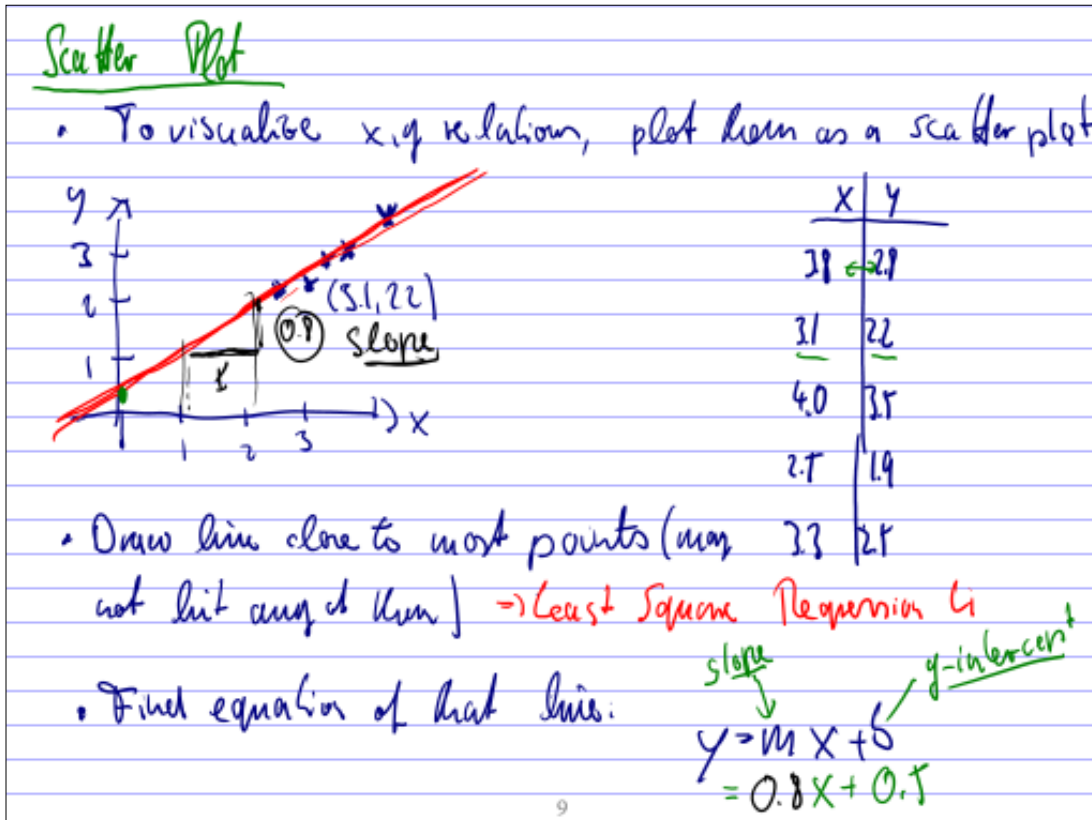 Scatter Plot
• To visualize x,y relations, plot them as a scatter plot
y
3
2
1
(3.1, 2.2)
0.8 slope
1
1 2 3 x
x y
3.8 2.8
3.1 2.2
4.0 3.5
2.5 1.9
3.3 2.5
• Draw line close to most points (may
not hit any of them) => Least Square Regression Li
slope y-intercept
• Find equation of that line:
y = mx + b
= 0.8x + 0.5
9